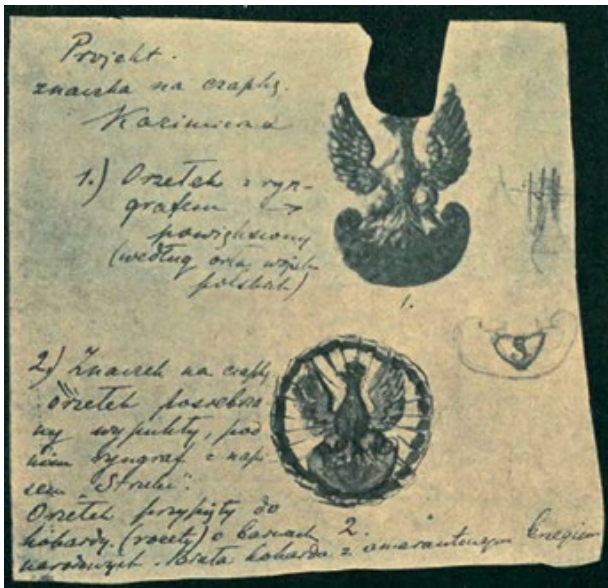 Projekt.
znaczka na czapkę.
Kazimierza
1.) Orzełek z ryn-
grafem →
powiększony
(według orła wojsk
polskich)
1.
S
2.) Znaczek na czapkę
orzełek posrebrza
ny wypukły, pod
nim ryngraf z napi
sem „Strzelec".
Orzełek przypięty do
kokardy (rozety) o barwach 2.
narodowych. Biała kokarda z amarantowym brzegiem